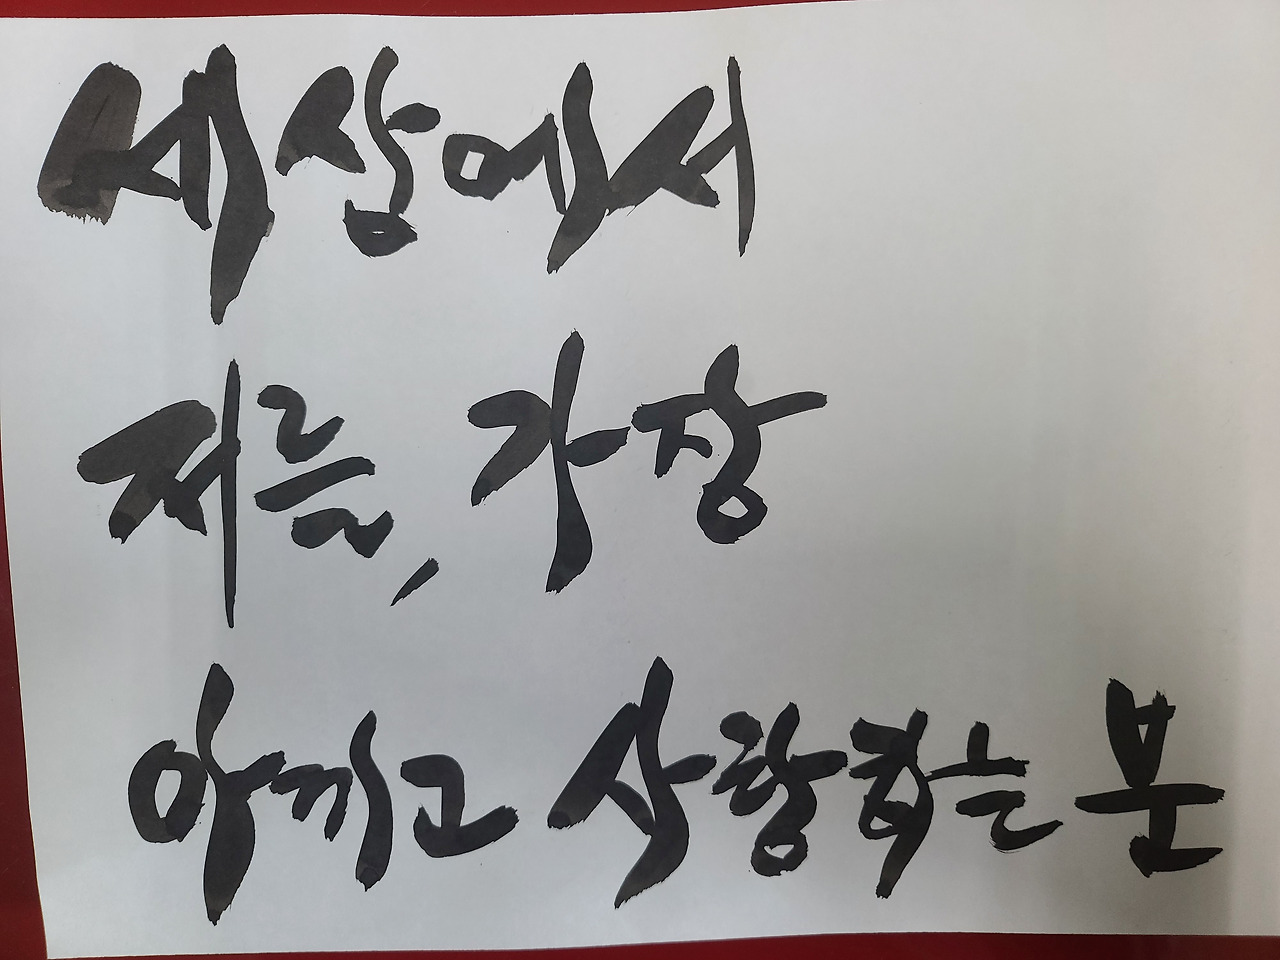 세상에서
저를, 가장
아끼고 사랑하는 분